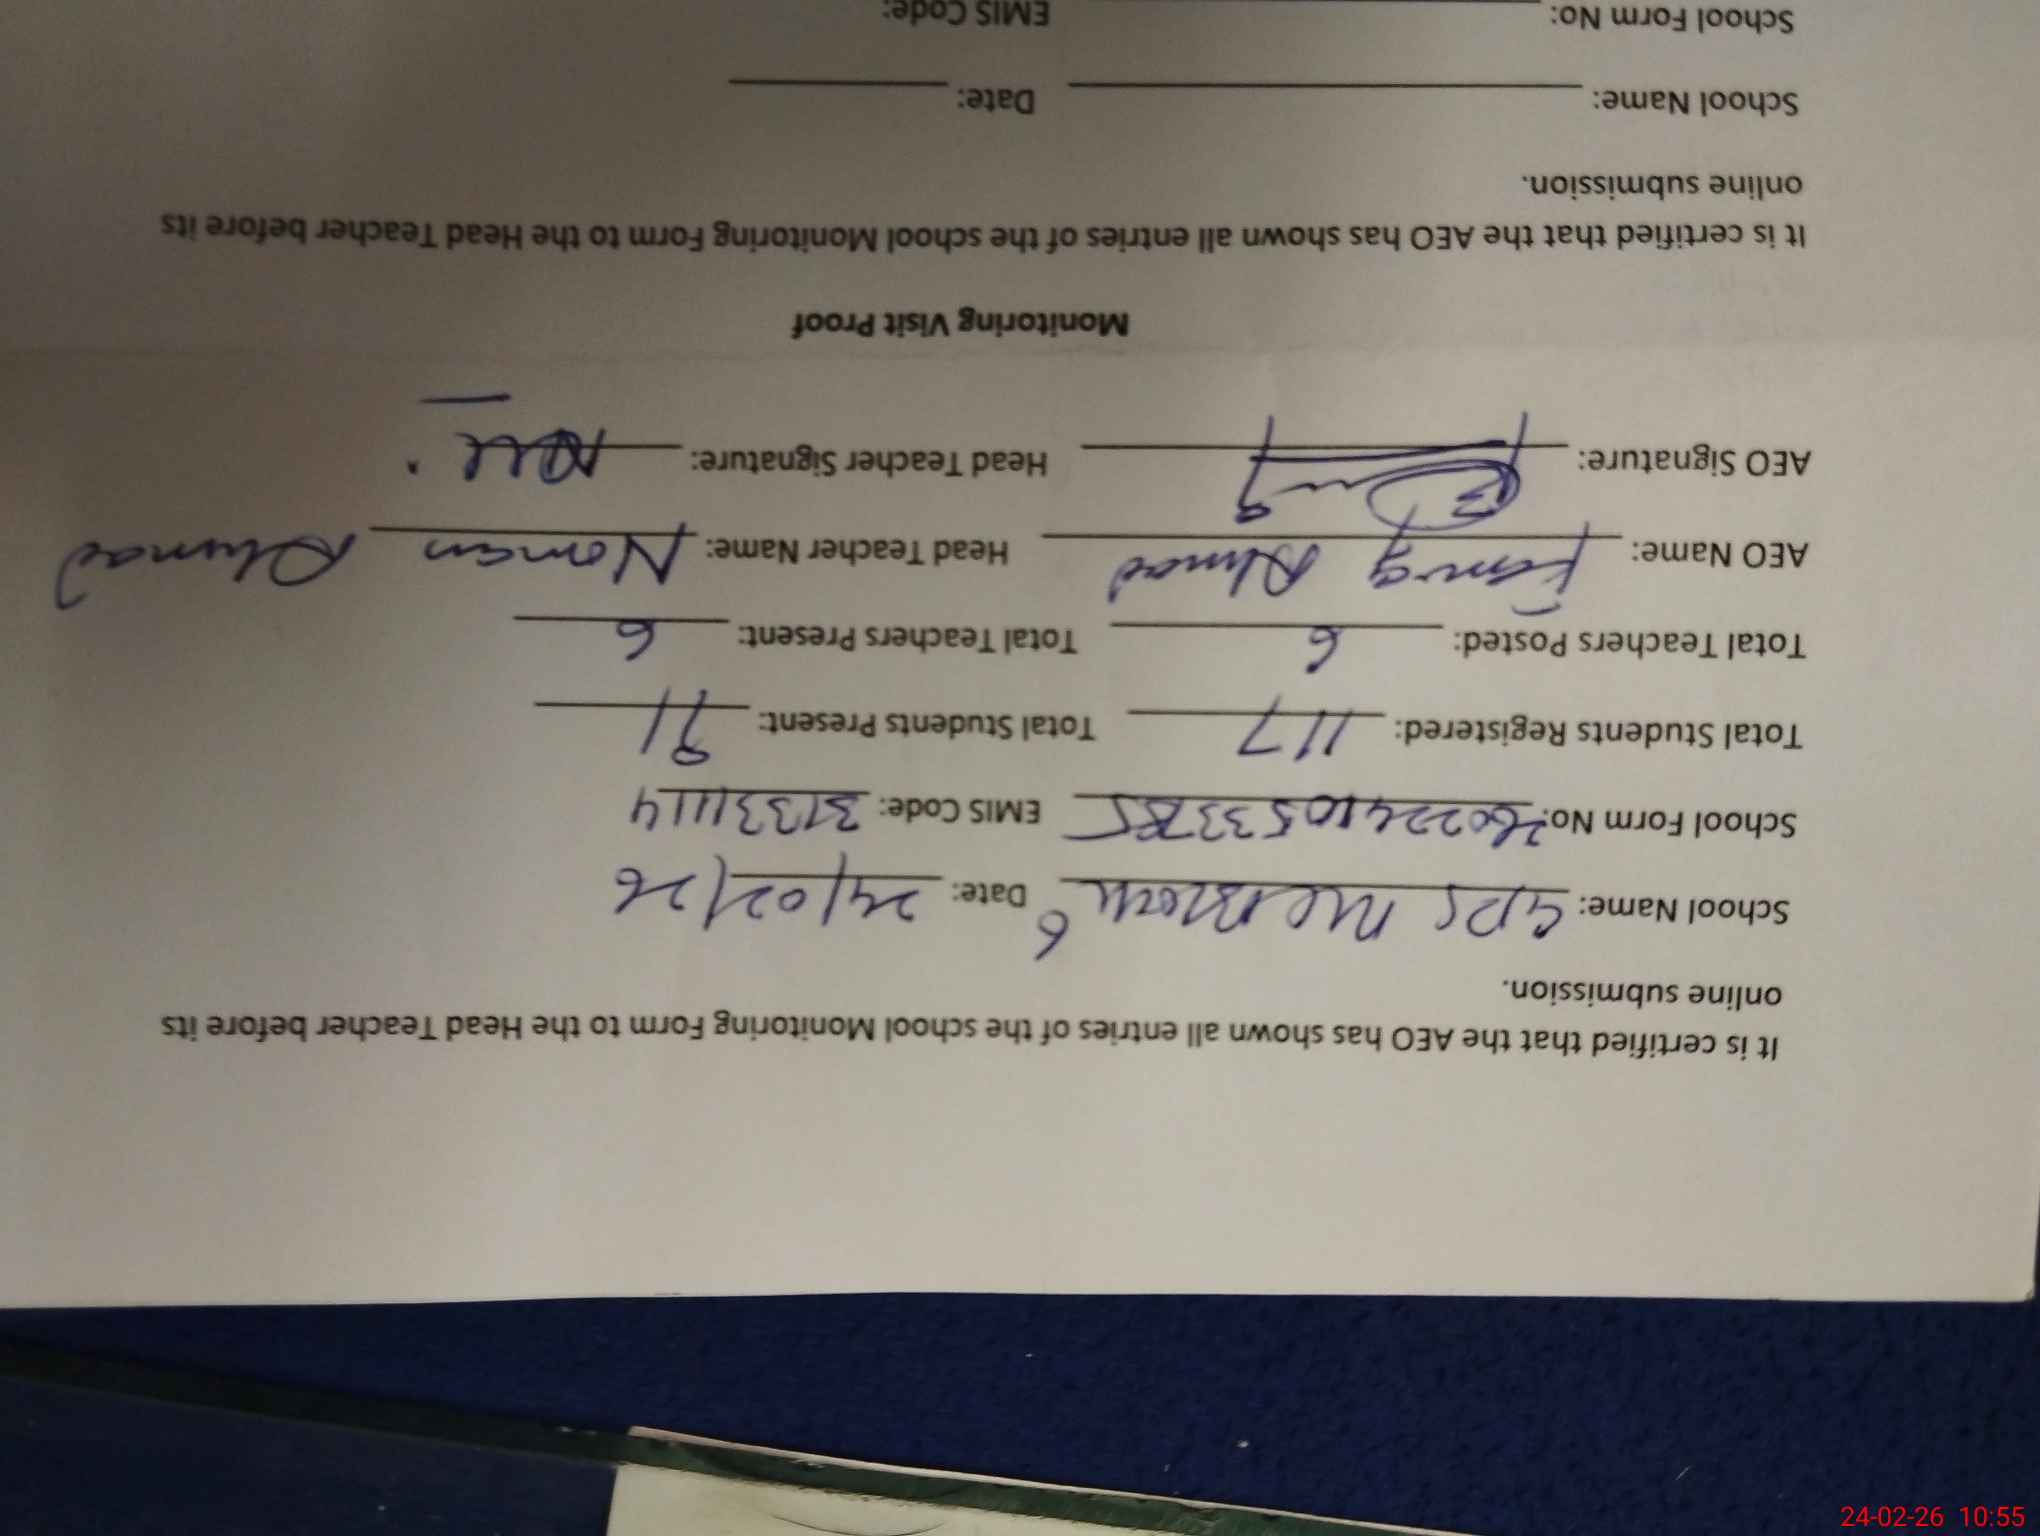 It is certified that the AEO has shown all entries of the school Monitoring Form to the Head Teacher before its
online submission.
School Name: GPS MC Block 6 Date: 24/02/26
School Form No: EMIS Code: 31331114
Total Students Registered: 117 Total Students Present: 91
Total Teachers Posted: 6 Total Teachers Present: 6
AEO Name: Ahmad Head Teacher Name: Noman Ahmad
AEO Signature: Head Teacher Signature:
Monitoring Visit Proof
It is certified that the AEO has shown all entries of the school Monitoring Form to the Head Teacher before its
online submission.
School Name: Date:
School Form No: EMIS Code:
24-02-26 10:55